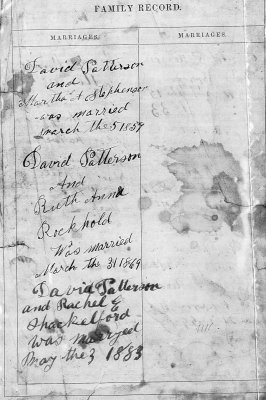 FAMILY RECORD.
MARRIAGES.
MARRIAGES.
David Patterson
and
Martha A Stephenson
was married
march the 5 1857
David Patterson
And
Ruth Anna
Rickhold
Was married
March the 31 1869
David Patterson
and Rachel E
Shackelford
was married
May the 3 1883